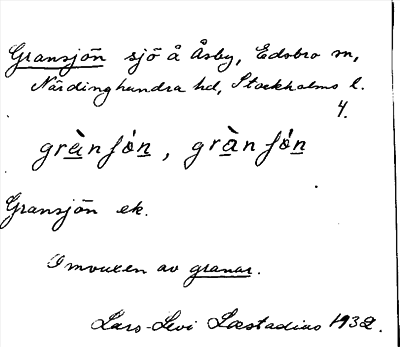 Gransjön sjö å Åsby, Edsbro sn,
Närdinghundra hd, Stockholms l.
4.
grànſón, grànſón
Gransjön ek.
Omvuxen av granar.
Lars-Levi Læstadius 1932.